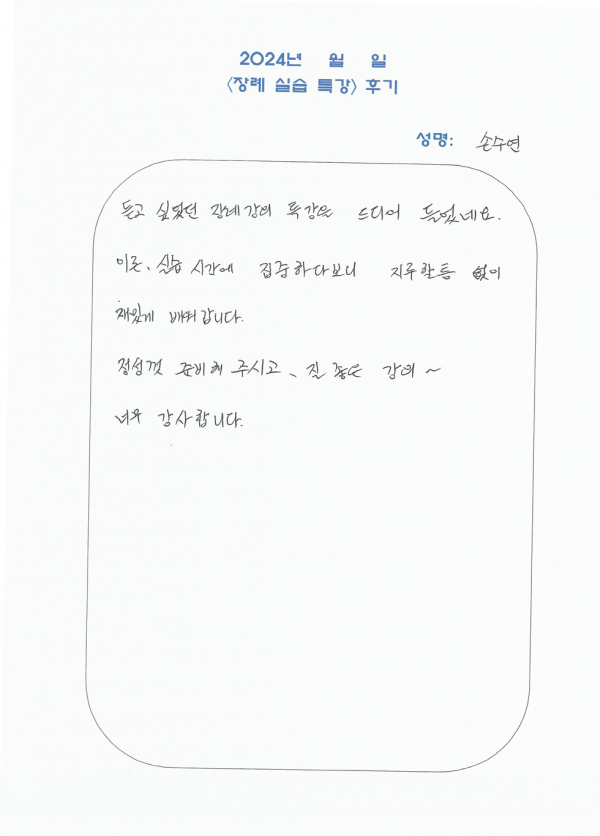 2024년 월 일
<장례 실습 특강> 후기
성명: 손수연
듣고 싶었던 장례강의 특강을 드디어 들었네요.
이론、실습 시간에 집중하다보니 지루할틈 없이
재밌게 배워갑니다.
정성껏 준비해 주시고、질 좋은 강의~
너무 감사합니다.